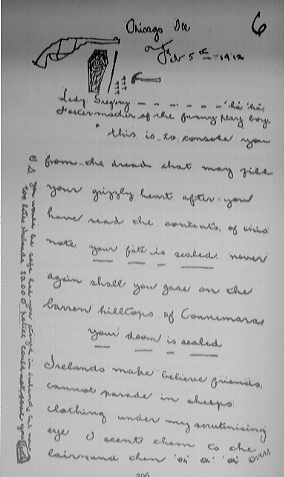 6
Chicago Ill
Feb 5th - 1912
Lady Gregory - - - - - - 'ha' 'ha'
Fostermother of the funny play boy
this is to console you
from the dreads that may fill
your grizzly heart after you
have read the contents of this
note your fate is sealed never
again shall you gase on the
barren hilltops of Connemara
your doom is sealed
Irelands make believe friends
cannot parade in sheeps
clothing under my scrutinising
eye I scent them to the
lair and then
P.S. You would be safe had you stayed in Ireland
too late Ireland's 20.000 police could not save you
206